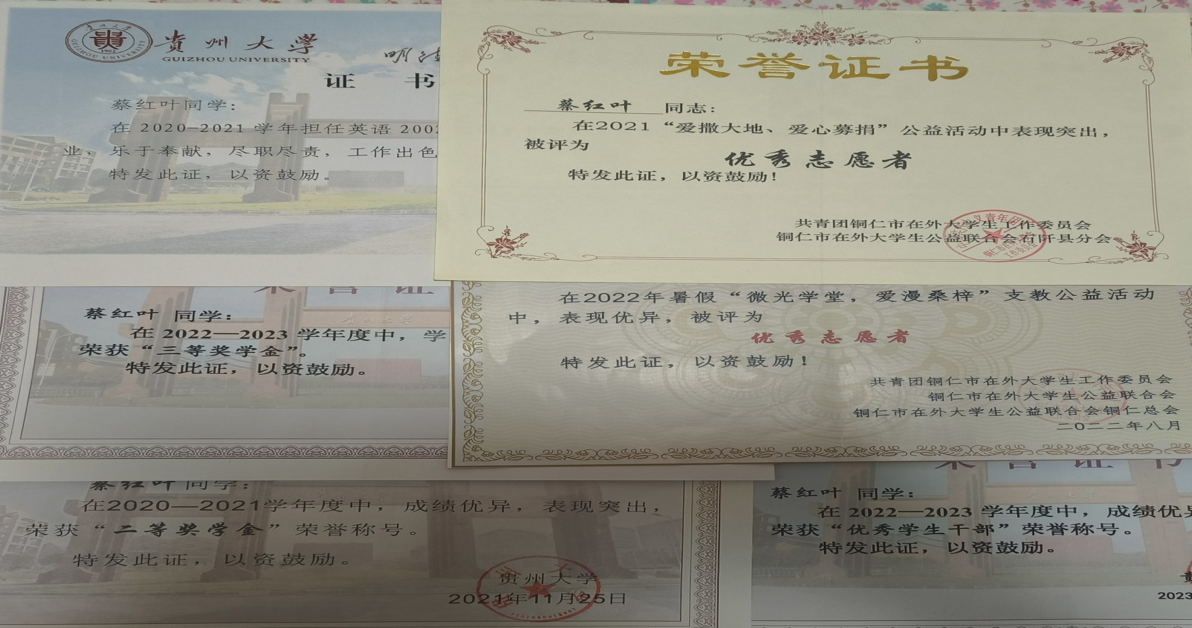 贵州大学
GUIZHOU UNIVERSITY
明德
证 书
蔡红叶同学：
在 2020-2021 学年担任英语 200
业、乐于奉献，尽职尽责，工作出色
特发此证，以资鼓励。
荣誉证书
蔡红叶 同志：
在2021“爱撒大地、爱心募捐”公益活动中表现突出，
被评为
优秀志愿者
特发此证，以资鼓励！
共青团铜仁市在外大学生工作委员会
铜仁市在外大学生公益联合会石阡县分会
荣誉证
蔡红叶 同学：
在 2022—2023 学年度中，学
荣获“三等奖学金”。
特发此证，以资鼓励。
在2022年暑假“微光学堂，爱漫桑梓”支教公益活动
中，表现优异，被评为
优秀志愿者
特发此证，以资鼓励！
共青团铜仁市在外大学生工作委员会
铜仁市在外大学生公益联合会
铜仁市在外大学生公益联合会铜仁总会
二〇二二年八月
蔡红叶同学：
在2020—2021学年度中，成绩优异，表现突出，
荣获“二等奖学金”荣誉称号。
特发此证，以资鼓励。
贵州大学
2021年11月25日
荣誉证书
蔡红叶 同学：
在 2022—2023 学年度中，成绩优异
荣获“优秀学生干部”荣誉称号。
特发此证，以资鼓励。
2023